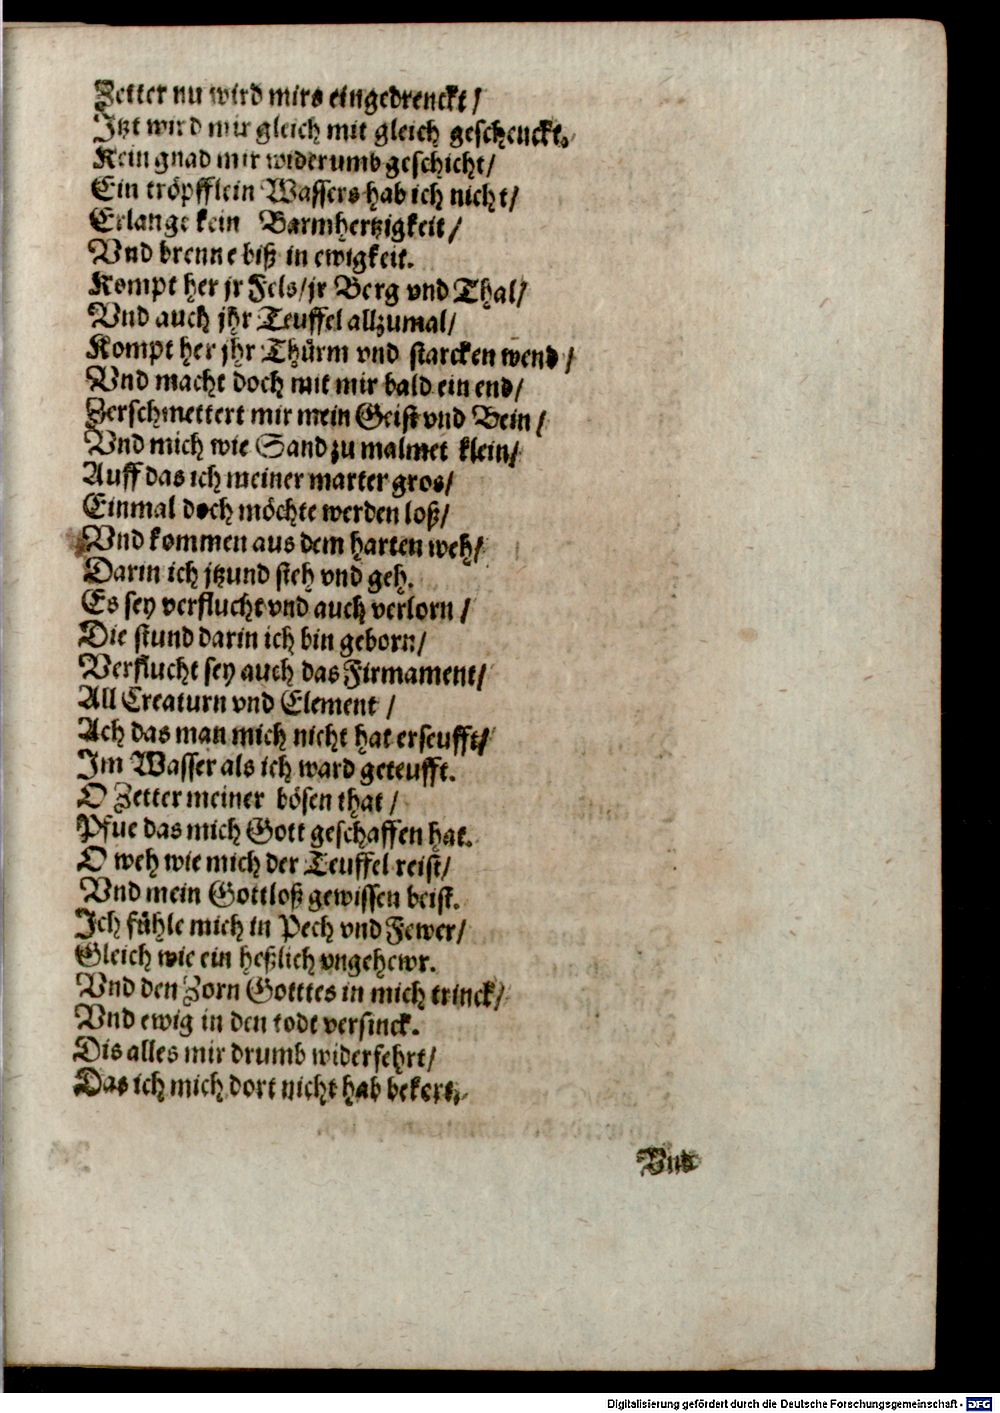 Zetter nu wird mirs eingedrenckt/
Itzt wird mir gleich mit gleich geschenckt.
Kein gnad mir widerumb geschicht/
Ein tröpfflein Wassers hab ich nicht/
Erlange kein Barmhertzigkeit/
Vnd brenne biß in ewigkeit.
Kompt her jr Fels/jr Berg vnd Thal/
Vnd auch jhr Teuffel allzumal/
Kompt her jhr Thürm vnd starcken wend/
Vnd macht doch mit mir bald ein end/
Zerschmettert mir mein Geist vnd Bein/
Vnd mich wie Sand zu malmet klein/
Auff das ich meiner marter gros/
Einmal doch möchte werden loß/
Vnd kommen aus dem harten weh/
Darin ich jtzund steh vnd geh.
Es sey verflucht vnd auch verlorn/
Die stund darin ich bin geborn/
Verflucht sey auch das Firmament/
All Creaturn vnd Element/
Ach das man mich nicht hat erseufft/
Im Wasser als ich ward geteufft.
O Zetter meiner bösen that/
Pfue das mich Gott geschaffen hat.
O weh wie mich der Teuffel reist/
Vnd mein Gottloß gewissen beist.
Ich fühle mich in Pech vnd Fewer/
Gleich wie ein heßlich vngehewr.
Vnd den Zorn Gotttes in mich trinck/
Vnd ewig in den todt versinck.
Dis alles mir drumb widerfehrt/
Das ich mich dort nicht hab bekert.
Vnd
Digitalisierung gefördert durch die Deutsche Forschungsgemeinschaft - DFG